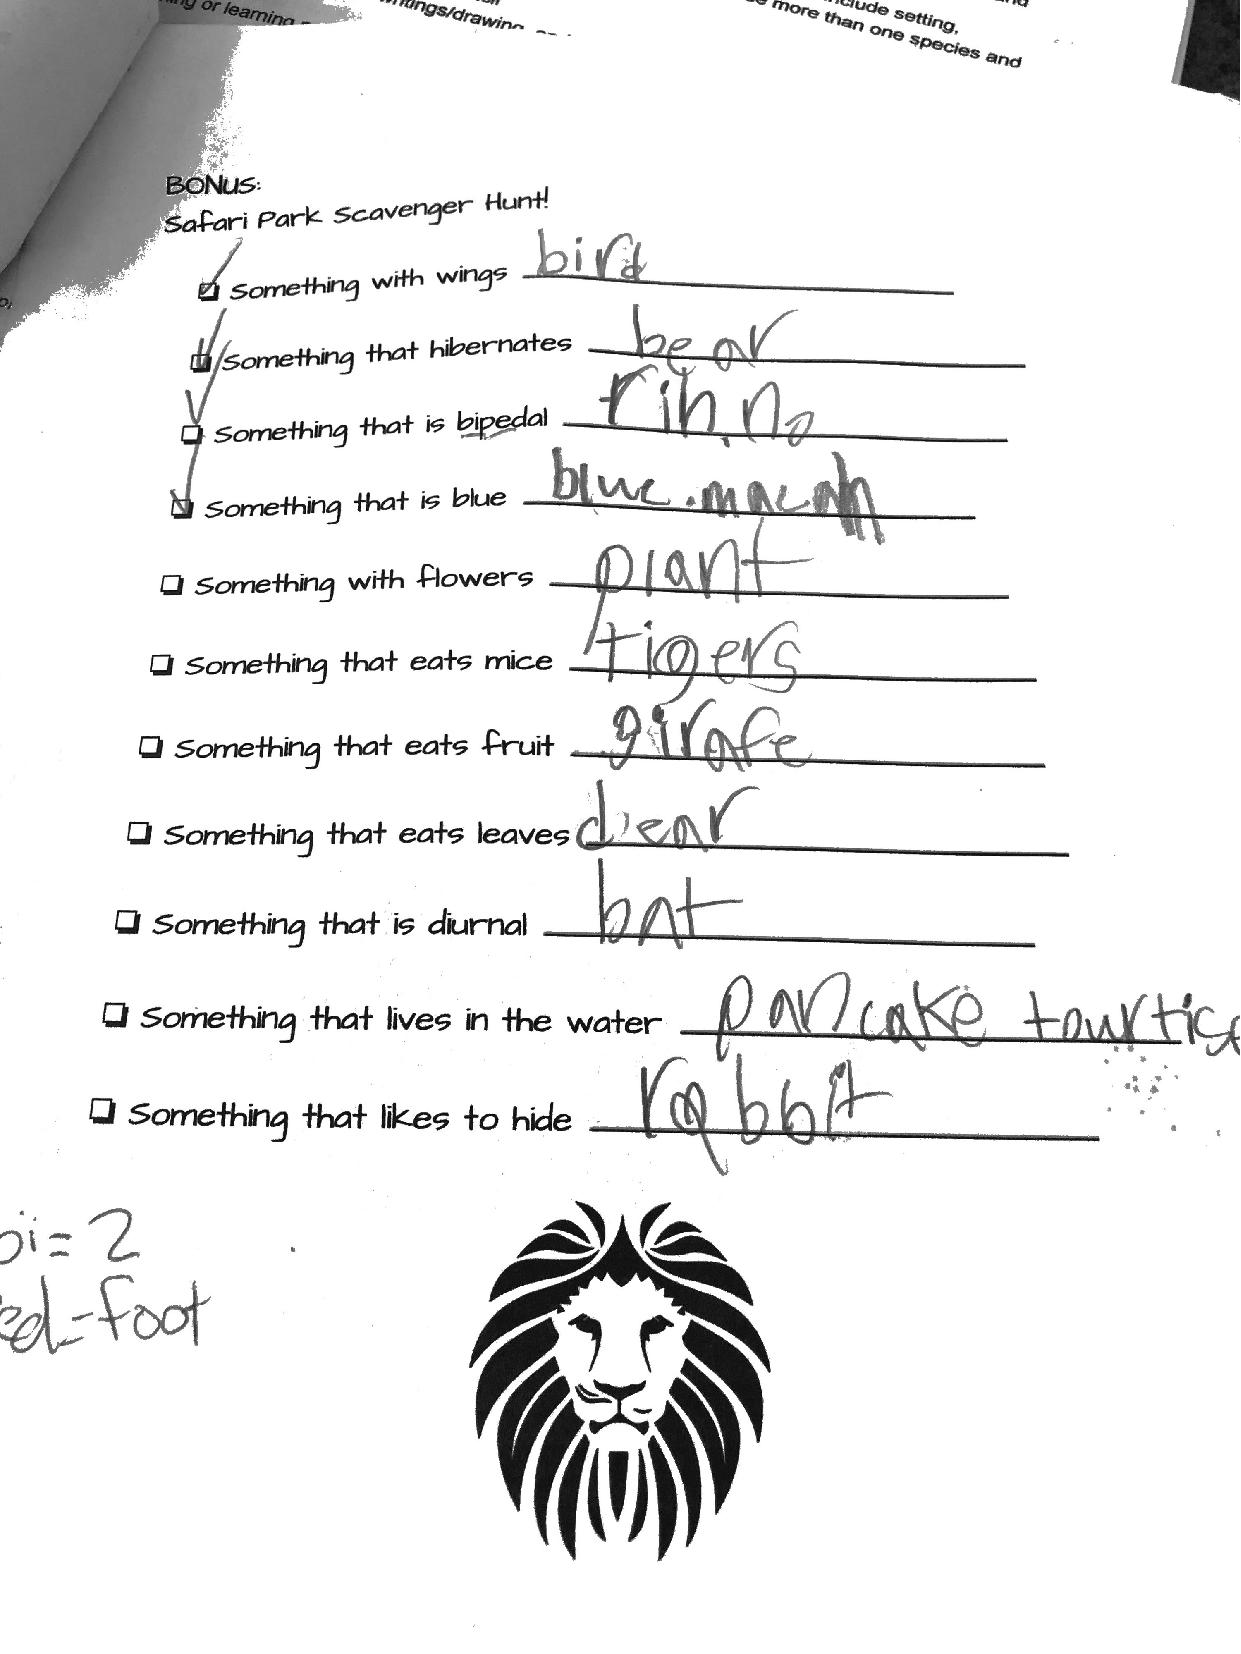 ng or learning
ings/drawing
include setting,
more than one species and
BONUS:
Safari Park Scavenger Hunt!
Something with wings bird
Something that hibernates bear
Something that is bipedal rih.no
Something that is blue blue.macah
Something with flowers plant
Something that eats mice tigers
Something that eats fruit girafe
Something that eats leaves diear
Something that is diurnal bat
Something that lives in the water pancake tourtise
Something that likes to hide rabbit
bi=2
ped=foot